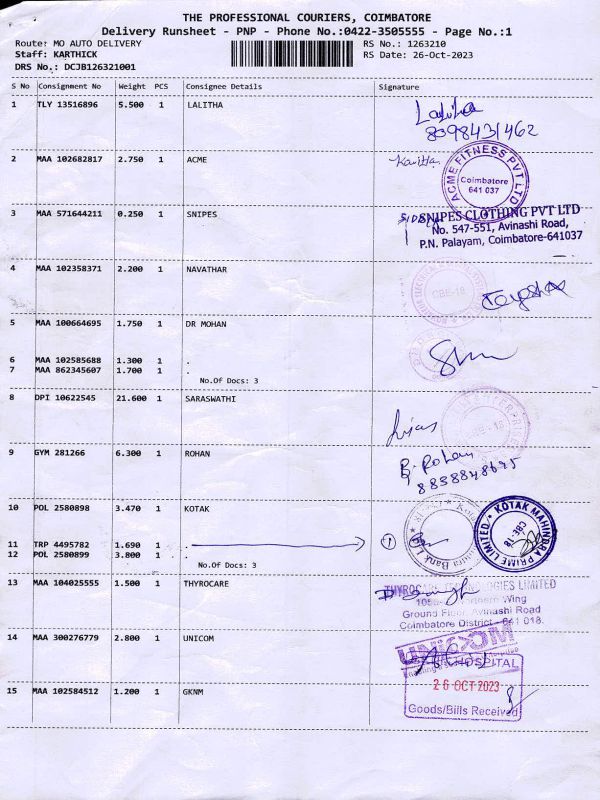 THE PROFESSIONAL COURIERS, COIMBATORE
Delivery Runsheet - PNP - Phone No.:0422-3505555 - Page No.:1
Route: MO AUTO DELIVERY RS No.: 1263210
Staff: KARTHICK RS Date: 26-Oct-2023
DRS No.: DCJB126321001
S No Consignment No Weight PCS Consignee Details Signature
1 TLY 13516896 5.500 1 LALITHA
Lalitha
8098431462
2 MAA 102682817 2.750 1 ACME
Kavitha
ACME FITNESS PVT LTD
Coimbatore
641 037
3 MAA 571644211 0.250 1 SNIPES
SNIPES CLOTHING PVT LTD
No. 547-551, Avinashi Road,
P.N. Palayam, Coimbatore-641037
4 MAA 102358371 2.200 1 NAVATHAR
CBE-18
5 MAA 100664695 1.750 1 DR MOHAN
6 MAA 102585688 1.300 1 .
7 MAA 862345607 1.700 1 .
No.Of Docs: 3
8 DPI 10622545 21.600 1 SARASWATHI
9 GYM 281266 6.300 1 ROHAN
R. Rohan
8838848695
10 POL 2580898 3.470 1 KOTAK
KOTAK MAHINDRA PRIME LIMITED
CBE-18
11 TRP 4495782 1.690 1 .
12 POL 2580899 3.800 1 .
No.Of Docs: 3
13 MAA 104025555 1.500 1 THYROCARE
THYROCARE TECHNOLOGIES LIMITED
Wing
Ground Floor, Avinashi Road
Coimbatore District - 641 018.
14 MAA 300276779 2.800 1 UNICOM
UNICOM
HOSPITAL
15 MAA 102584512 1.200 1 GKNM
26 OCT 2023
Goods/Bills Received